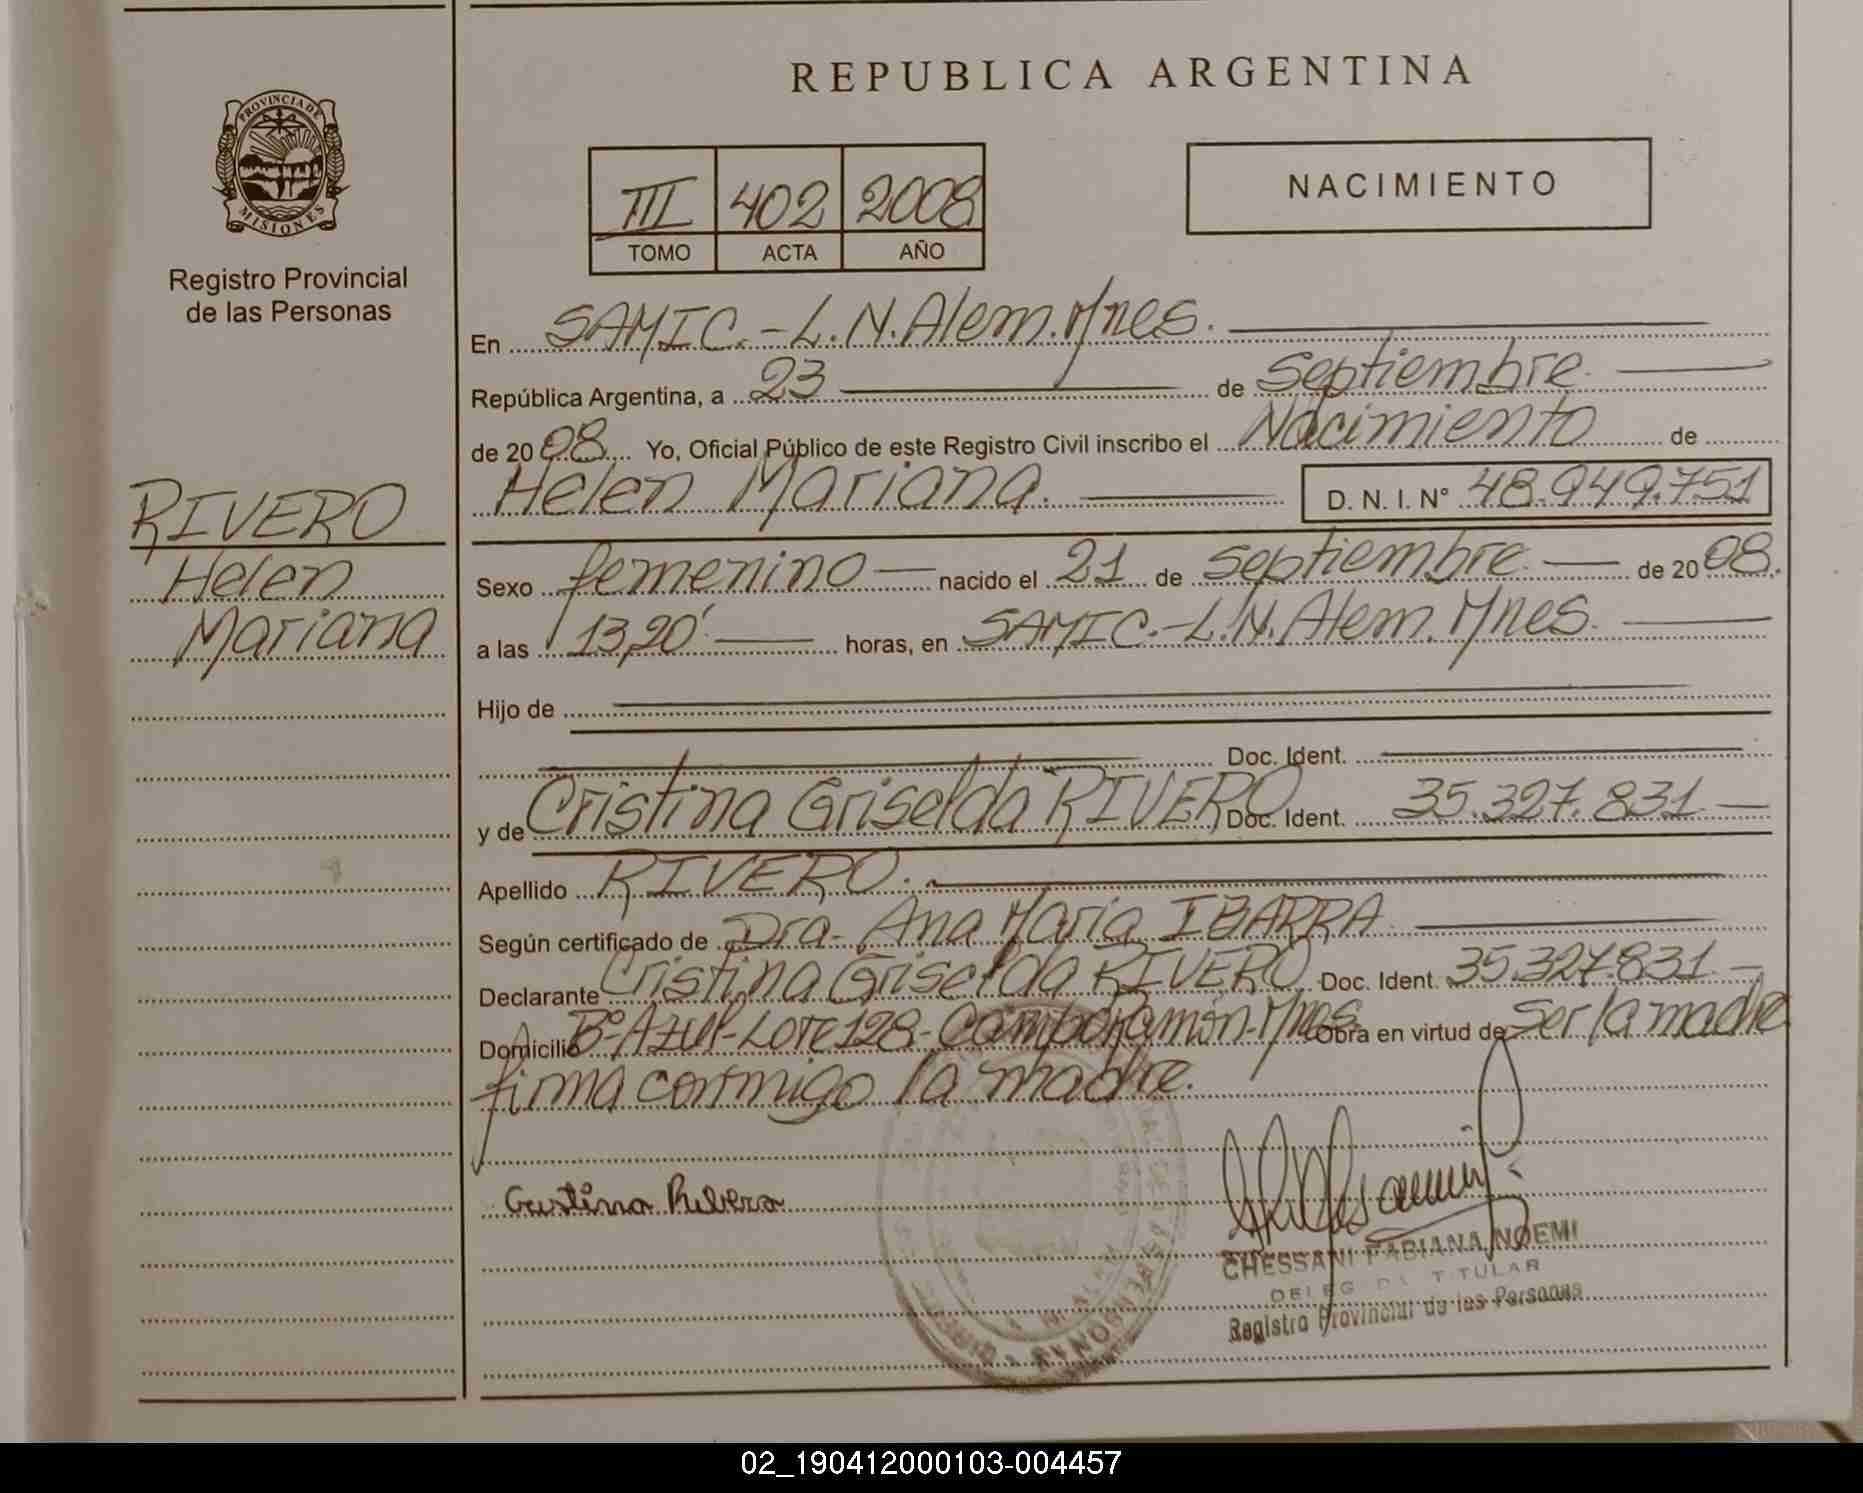 REPUBLICA ARGENTINA
PROVINCIA DE
MISIONES
Registro Provincial
de las Personas
III 402 2008
TOMO ACTA AÑO
NACIMIENTO
RIVERO
Helen
Mariana
En SAMIC.-L.N.Alem.Mnes.
República Argentina, a 23 de septiembre
de 2008 Yo, Oficial Público de este Registro Civil inscribo el Nacimiento de
Helen Mariana. D. N. I. N° 48.949.751
Sexo femenino nacido el 21 de septiembre de 2008.
a las 13,20' horas, en SAMIC.-L.N.Alem.Mnes.
Hijo de
Doc. Ident.
y de Cristina Griselda RIVERO Doc. Ident. 35.327.831
Apellido RIVERO.
Según certificado de Dra. Ana Maria IBARRA
Declarante Cristina Griselda RIVERO Doc. Ident. 35.327.831
Domicilio B° Azul-Lote 128-Campo Ramón-Mnes Obra en virtud de ser la madre
firma conmigo la madre.
Cristina Rivero
CHESSANI FABIANA NOEMI
TITULAR
Registro Provincial de las Personas
02_190412000103-004457